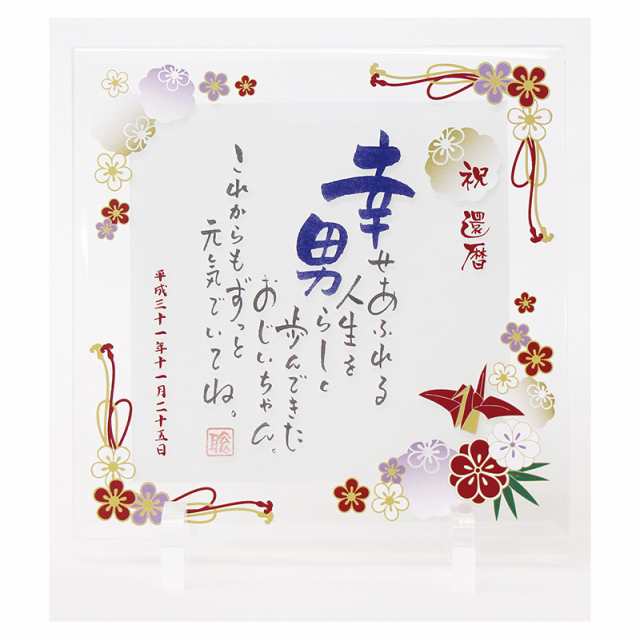 祝 還暦
幸せあふれる
人生を
男らしと
歩んできた
おじいちゃん。
これからもずっと
元気でいてね。
平成三十一年十一月二十五日
聡